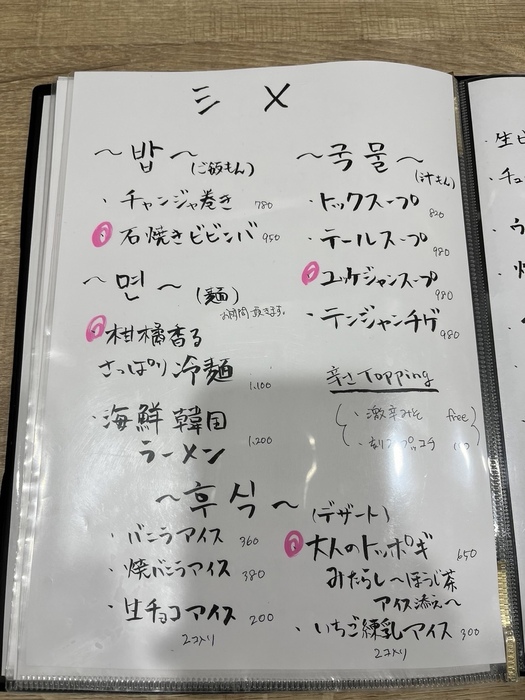 シメ
~밥~ (ご飯もん)
・チャンジャ巻き 780
石焼きビビンバ 950
~면~ (麺)
お時間頂きます。
柑橘香る
さっぱり冷麺 1,100
・海鮮韓国
ラーメン 1,200
~국물~ (汁もん)
・トックスープ 820
・テールスープ 980
ユッケジャンスープ 980
・テンジャンチゲ 980
辛さTopping
・激辛みそ free
~후식~ (デザート)
・バニラアイス 360
・焼バニラアイス 380
・生チョコアイス 200
2コ入り
大人のトッポギ 650
みたらし~ほうじ茶
アイス添え~
・いちご練乳アイス 300
2コ入り
・生ビ
・チュ